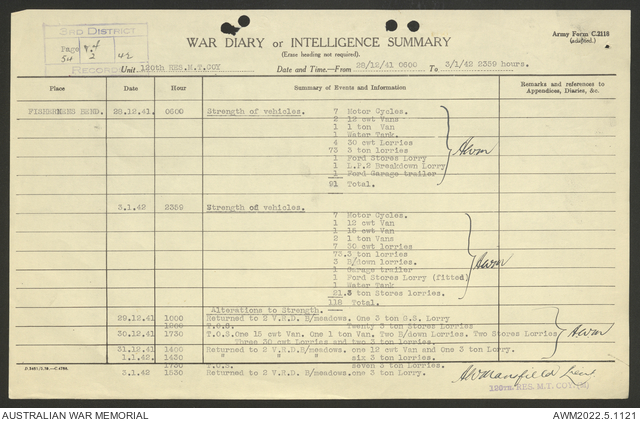 3RD DISTRICT
Page
54
2
42
RECORDS
WAR DIARY or INTELLIGENCE SUMMARY
(Erase heading not required).
Army Form C.2118
(adapted.)
Unit 120th RES.M.T.COY
Date and Time—From 28/12/41 0600 To 3/1/42 2359 hours.
Place Date Hour Summary of Events and Information Remarks and references to
Appendices, Diaries, &c.
FISHERMENS BEND. 28.12.41. 0600 Strength of vehicles. 7 Motor Cycles.
2 12 cwt Vans
1 1 ton Van
1 Water Tank.
4 30 cwt Lorries
73 3 ton lorries
1 Ford Stores Lorry
1 L.P.2 Breakdown Lorry
1 Ford Garage trailer
91 Total.
3.1.42 2359 Strength of vehicles.
7 Motor Cycles.
1 12 cwt Van
1 15 cwt Van
2 1 ton Vans
7 30 cwt lorries
73 3 ton lorries
3 B/down lorries.
1 Garage trailer
1 Ford Stores Lorry (fitted)
1 Water Tank
21 3 ton Stores lorries.
118 Total.
Alterations to Strength.
29.12.41 1000 Returned to 2 V.R.D. B/meadows. One 3 ton G.S. Lorry
T.O.S. Twenty 3 ton Stores Lorries
30.12.41 1730 T.O.S. One 15 cwt Van. One 1 ton Van. Two B/down Lorries. Two Stores Lorries
Three 30 cwt Lorries and two 3 ton lorries.
31.12.41 1400 Returned to 2 V.R.D. B/meadows. one 12 cwt Van and One 3 ton Lorry.
1.1.42 1430 " " " six 3 ton lorries.
T.O.S. seven 3 ton lorries.
3.1.42 1530 Returned to 2 V.R.D. B/meadows. one 3 ton Lorry.
Mansfield Lieut
120th RES. M.T. COY.
AUSTRALIAN WAR MEMORIAL
AWM2022.5.1121